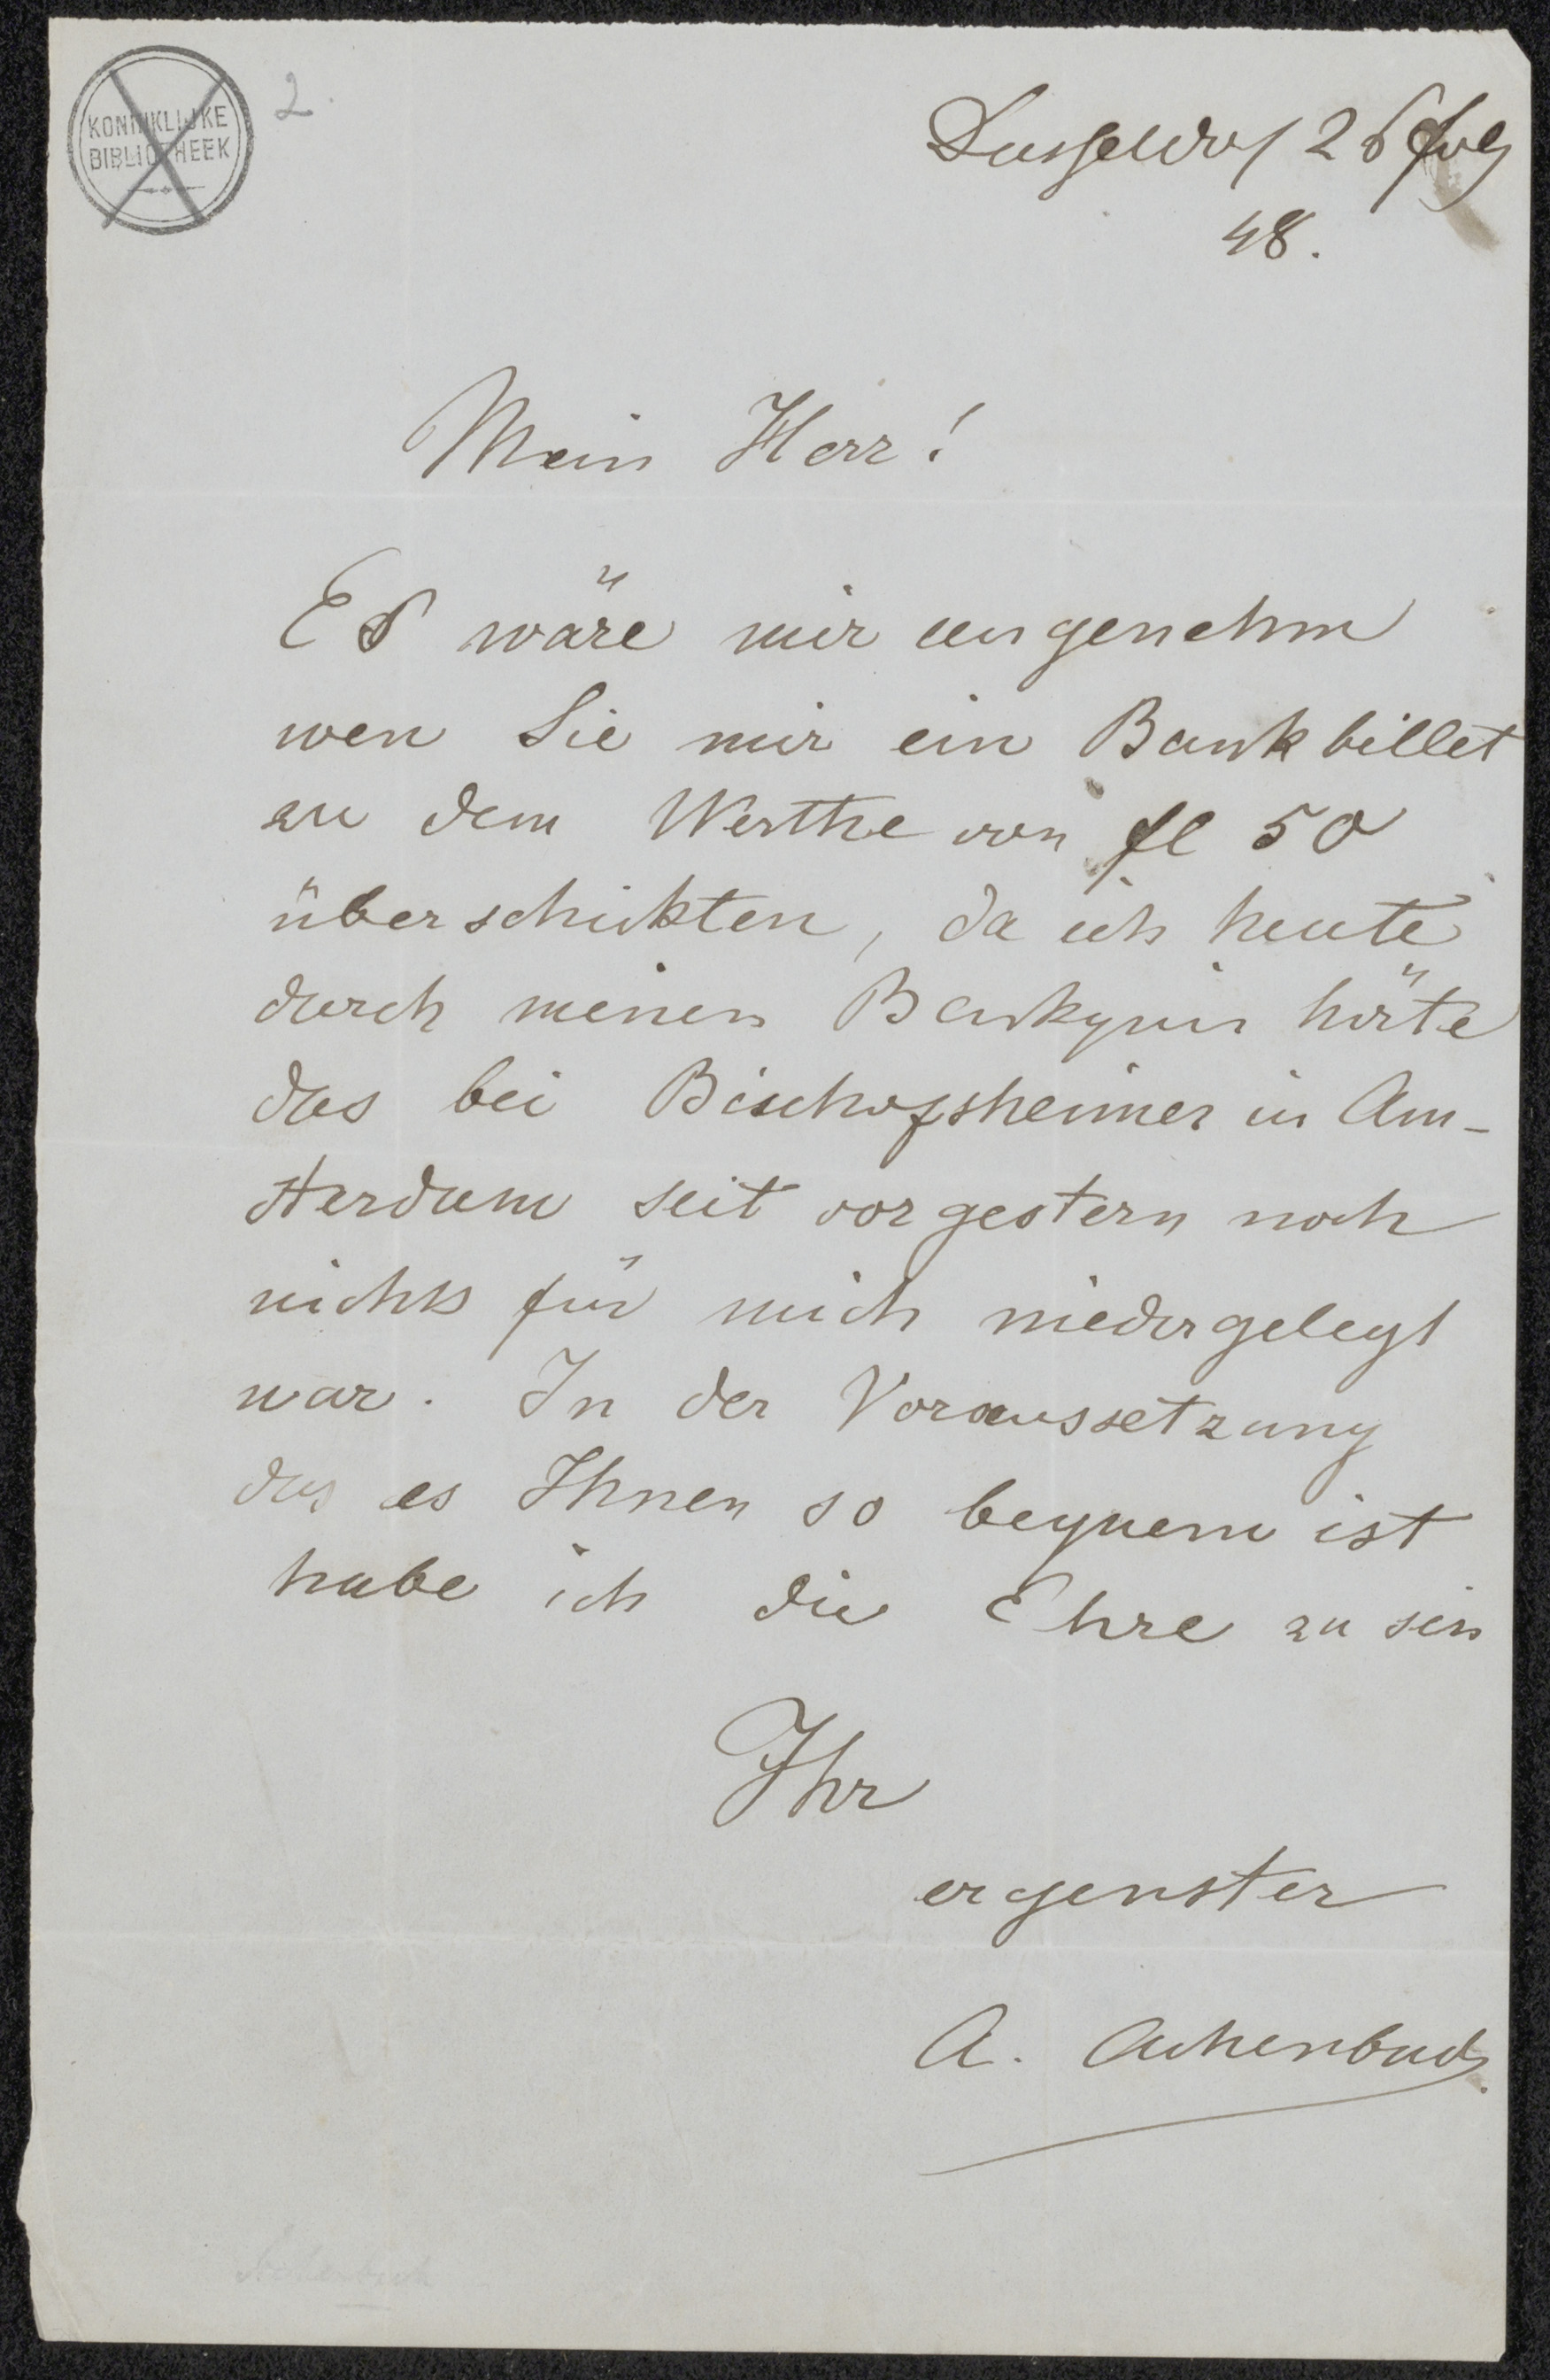 KONINKLIJKE
BIBLIOTHEEK
2.
Dusseldorf 26 July
48.
Mein Herr!
Es wäre mir angenehm
wen Sie mir ein Bankbillet
zu dem Werthe von fl 50
überschikten, da ich heute
durch meinen Bankquir hörte
das bei Bischofsheimer in Am-
sterdam seit vorgestern noch
nichts für mich niedergelegt
war. In der Voraussetzung
das es Ihnen so bequem ist
habe ich die Ehre zu sein
Ihr
ergenster
A. Achenbach.
Achenbach